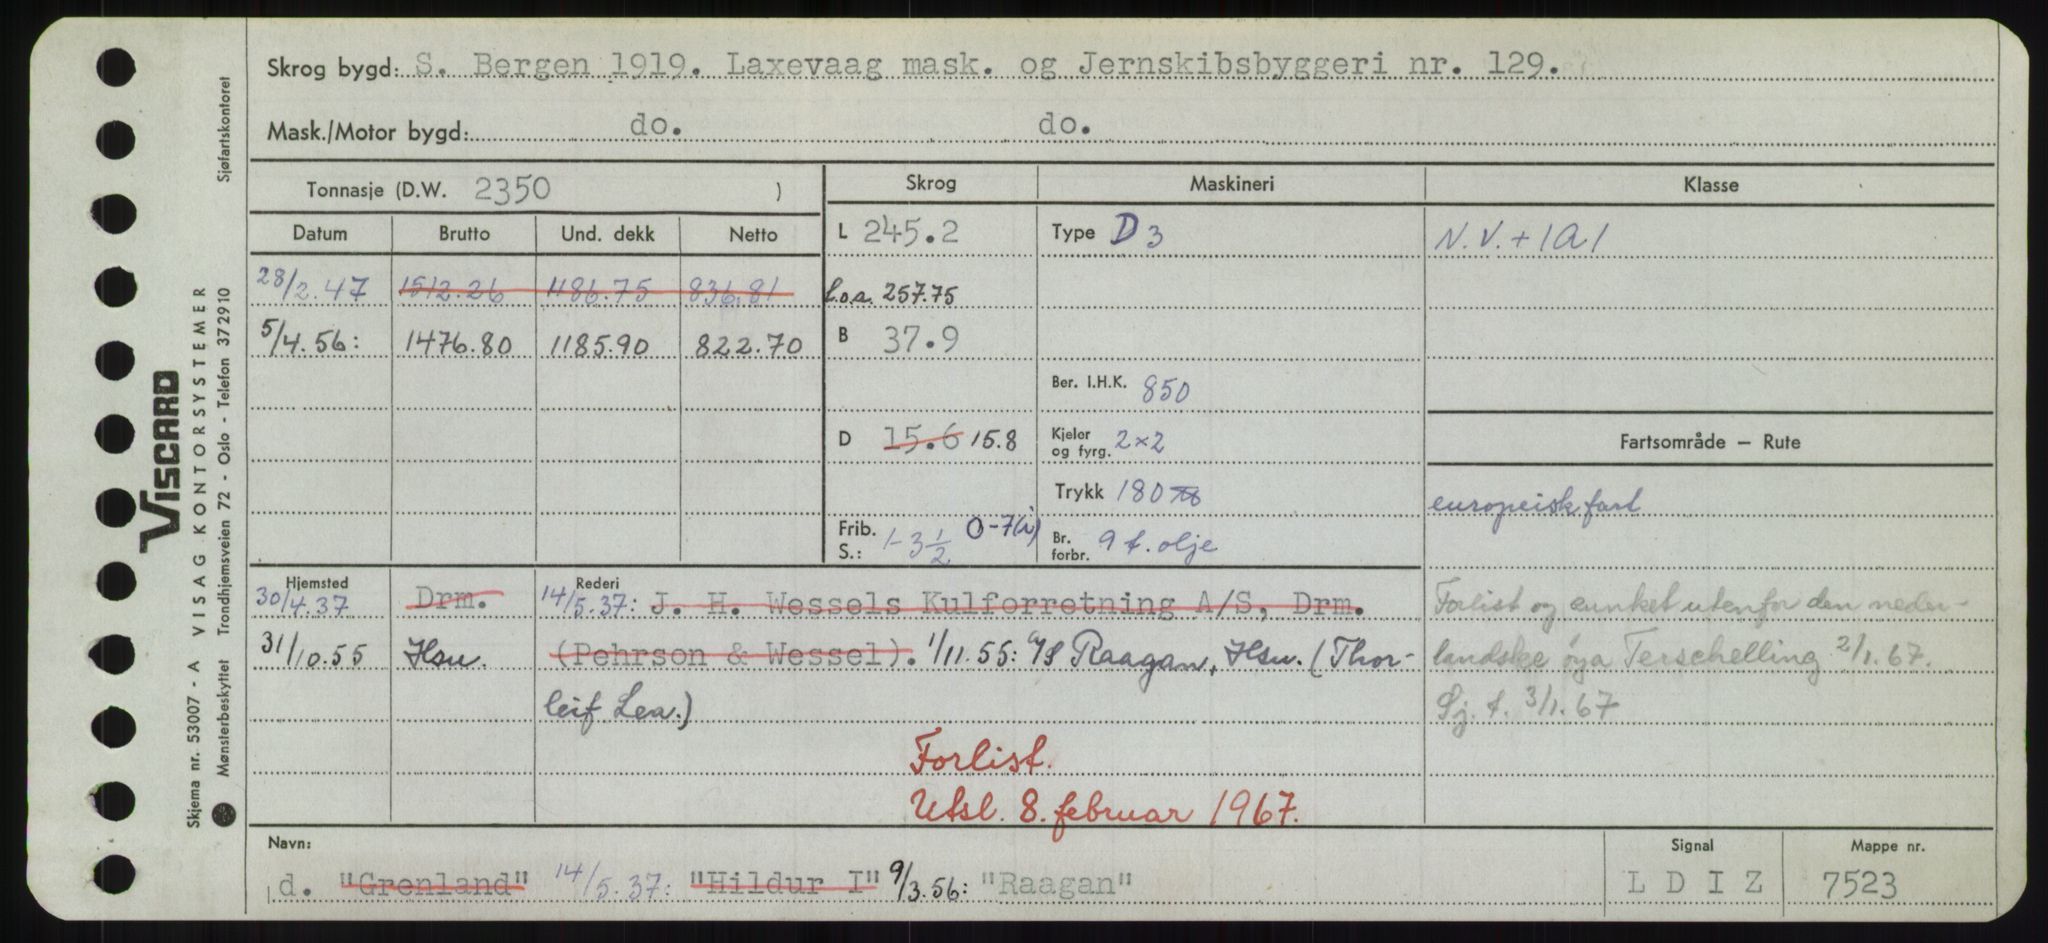 Skrog bygd: S. Bergen 1919. Laxevaag mask. og Jernskibsbyggeri nr. 129.
Mask./Motor bygd: do. do.
Tonnasje (D.W. 2350 )
Skrog Maskineri Klasse
Datum Brutto Und. dekk Netto
L 245.2 Type D 3 N.V. + 1A1
28/2.47 1512.26 1186.75 836.81 L.o.a. 257.75
5/4.56: 1476.80 1185.90 822.70 B 37.9
Ber. I.H.K. 850
D 15.6 15.8 Kjeler og fyrg. 2x2 Fartsområde – Rute
Trykk 180 europeisk fart
Frib. S.: 1-3½ 0-7(i) Br. forbr. 9 t. olje
Hjemsted Rederi
30/4.37 Drm. 14/5.37: J. H. Wessels Kulforretning A/S, Drm. Forlist og sunket utenfor den neder-
31/10.55 Hsu. (Pehrson & Wessel). 1/11.55: A/S Raagan, Hsu. (Thor- landske øya Terschelling 2/1.67.
leif Lea.) Sj. t. 3/1.67
Forlist.
Utsl. 8. februar 1967.
Navn: Signal Mappe nr.
d. "Grenland" 14/5.37: "Hildur I" 9/3.56: "Raagan" L D I Z 7523
VISCARD
Skjema nr. 53007 - A VISAG KONTORSYSTEMER
Mønsterbeskyttet Trondhjemsveien 72 - Oslo - Telefon 372910 Sjøfartskontoret